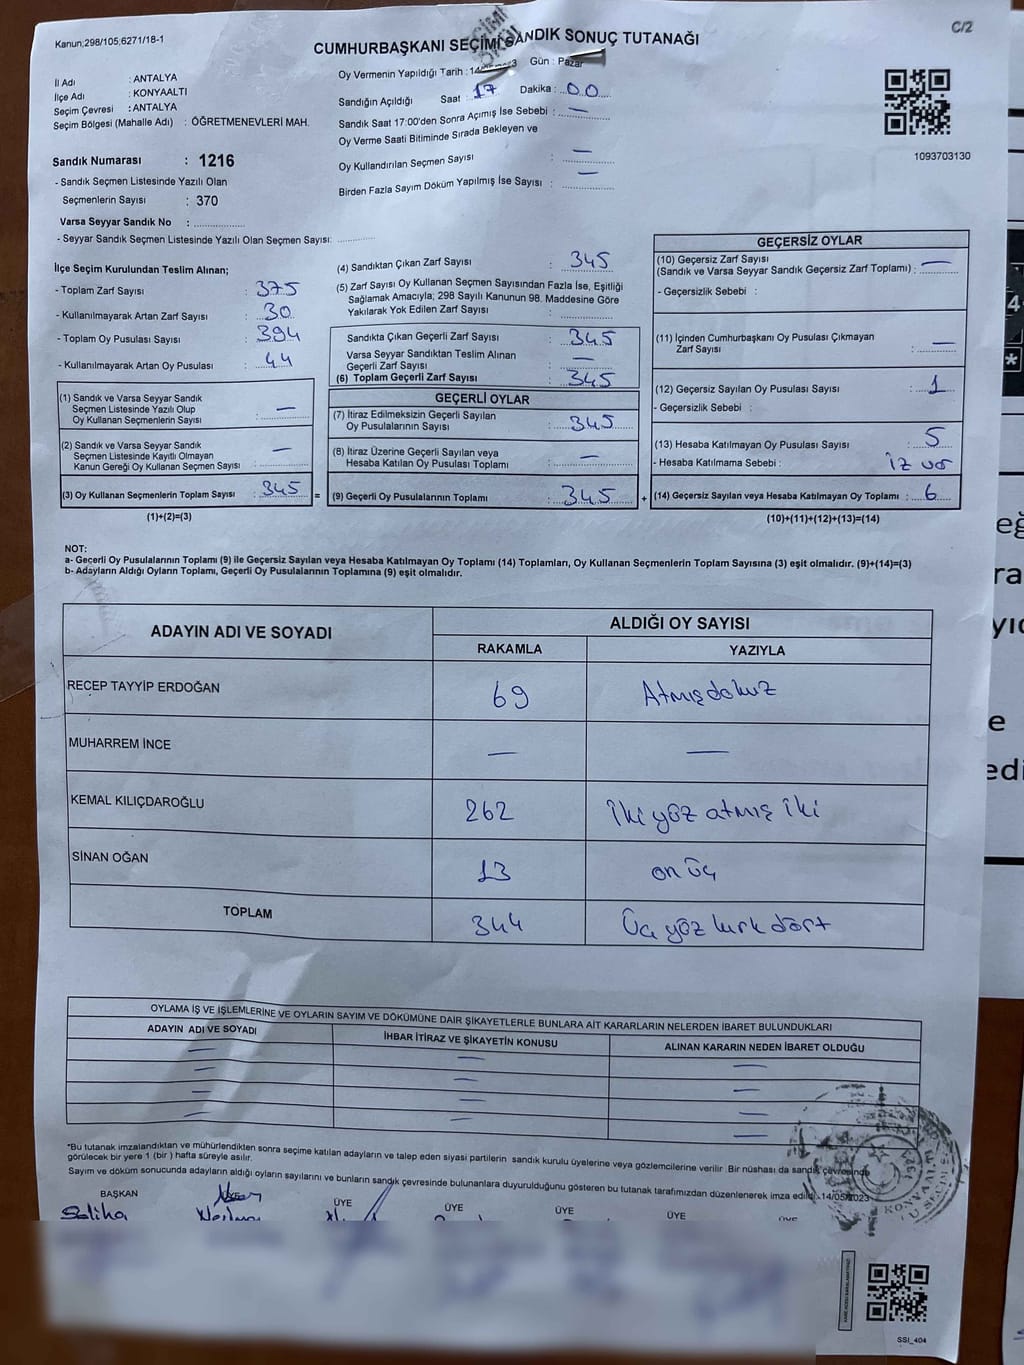 Kanun;298/105;6271/18-1
C/2
CUMHURBAŞKANI SEÇİMİ SANDIK SONUÇ TUTANAĞI
İl Adı : ANTALYA
İlçe Adı : KONYAALTI
Seçim Çevresi : ANTALYA
Seçim Bölgesi (Mahalle Adı) : ÖĞRETMENEVLERİ MAH.
Sandık Numarası : 1216
- Sandık Seçmen Listesinde Yazılı Olan
Seçmenlerin Sayısı : 370
Varsa Seyyar Sandık No :
- Seyyar Sandık Seçmen Listesinde Yazılı Olan Seçmen Sayısı:
Oy Vermenin Yapıldığı Tarih : Gün : Pazar
Sandığın Açıldığı Saat : 17 Dakika : 00
Sandık Saat 17:00'den Sonra Açımış İse Sebebi : —
Oy Verme Saati Bitiminde Sırada Bekleyen ve
Oy Kullandırılan Seçmen Sayısı : —
Birden Fazla Sayım Döküm Yapılmış İse Sayısı : —
1093703130
İlçe Seçim Kurulundan Teslim Alınan;
- Toplam Zarf Sayısı : 375
- Kullanılmayarak Artan Zarf Sayısı : 30
- Toplam Oy Pusulası Sayısı : 394
- Kullanılmayarak Artan Oy Pusulası : 44
(1) Sandık ve Varsa Seyyar Sandık
Seçmen Listesinde Yazılı Olup
Oy Kullanan Seçmenlerin Sayısı : —
(2) Sandık ve Varsa Seyyar Sandık
Seçmen Listesinde Kayıtlı Olmayan
Kanun Gereği Oy Kullanan Seçmen Sayısı : —
(3) Oy Kullanan Seçmenlerin Toplam Sayısı : 345 =
(1)+(2)=(3)
(4) Sandıktan Çıkan Zarf Sayısı : 345
(5) Zarf Sayısı Oy Kullanan Seçmen Sayısından Fazla İse, Eşitliği
Sağlamak Amacıyla; 298 Sayılı Kanunun 98. Maddesine Göre
Yakılarak Yok Edilen Zarf Sayısı :
Sandıkta Çıkan Geçerli Zarf Sayısı : 345
Varsa Seyyar Sandıktan Teslim Alınan
Geçerli Zarf Sayısı : —
(6) Toplam Geçerli Zarf Sayısı : 345
GEÇERLİ OYLAR
(7) İtiraz Edilmeksizin Geçerli Sayılan
Oy Pusulalarının Sayısı : 345
(8) İtiraz Üzerine Geçerli Sayılan veya
Hesaba Katılan Oy Pusulası Toplamı : —
(9) Geçerli Oy Pusulalarının Toplamı : 345 +
GEÇERSİZ OYLAR
(10) Geçersiz Zarf Sayısı
(Sandık ve Varsa Seyyar Sandık Geçersiz Zarf Toplamı) : —
- Geçersizlik Sebebi :
(11) İçinden Cumhurbaşkanı Oy Pusulası Çıkmayan
Zarf Sayısı : —
(12) Geçersiz Sayılan Oy Pusulası Sayısı : 1
- Geçersizlik Sebebi :
(13) Hesaba Katılmayan Oy Pusulası Sayısı : 5
- Hesaba Katılmama Sebebi : iz var
(14) Geçersiz Sayılan veya Hesaba Katılmayan Oy Toplamı : 6
(10)+(11)+(12)+(13)=(14)
NOT:
a- Geçerli Oy Pusulalarının Toplamı (9) ile Geçersiz Sayılan veya Hesaba Katılmayan Oy Toplamı (14) Toplamları, Oy Kullanan Seçmenlerin Toplam Sayısına (3) eşit olmalıdır. (9)+(14)=(3)
b- Adayların Aldığı Oyların Toplamı, Geçerli Oy Pusulalarının Toplamına (9) eşit olmalıdır.
ADAYIN ADI VE SOYADI ALDIĞI OY SAYISI
RAKAMLA YAZIYLA
RECEP TAYYİP ERDOĞAN 69 Atmışdokuz
MUHARREM İNCE — —
KEMAL KILIÇDAROĞLU 262 İkiyüz atmış iki
SİNAN OĞAN 13 on üç
TOPLAM 344 Üçyüz kırk dört
OYLAMA İŞ VE İŞLEMLERİNE VE OYLARIN SAYIM VE DÖKÜMÜNE DAİR ŞİKAYETLERLE BUNLARA AİT KARARLARIN NELERDEN İBARET BULUNDUKLARI
ADAYIN ADI VE SOYADI İHBAR İTİRAZ VE ŞİKAYETİN KONUSU ALINAN KARARIN NEDEN İBARET OLDUĞU
*Bu tutanak imzalandıktan ve mühürlendikten sonra seçime katılan adayların ve talep eden siyasi partilerin sandık kurulu üyelerine veya gözlemcilerine verilir. Bir nüshası da sandık çevresinde
görülecek bir yere 1 (bir ) hafta süreyle asılır.
Sayım ve döküm sonucunda adayların aldığı oyların sayılarını ve bunların sandık çevresinde bulunanlara duyurulduğunu gösteren bu tutanak tarafımızdan düzenlenerek imza edildi. 14/05/2023
BAŞKAN ÜYE ÜYE ÜYE ÜYE
Saliha
SSİ_404